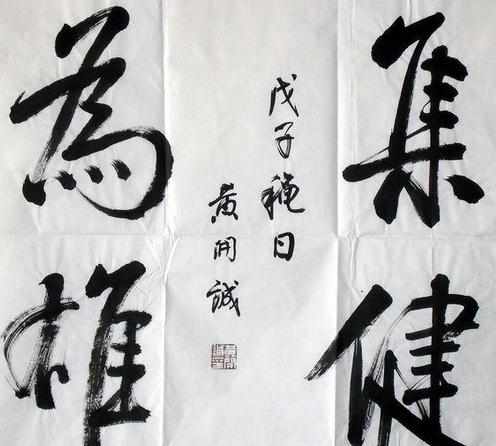 集健
為雄
戊子穐日
黄開誠